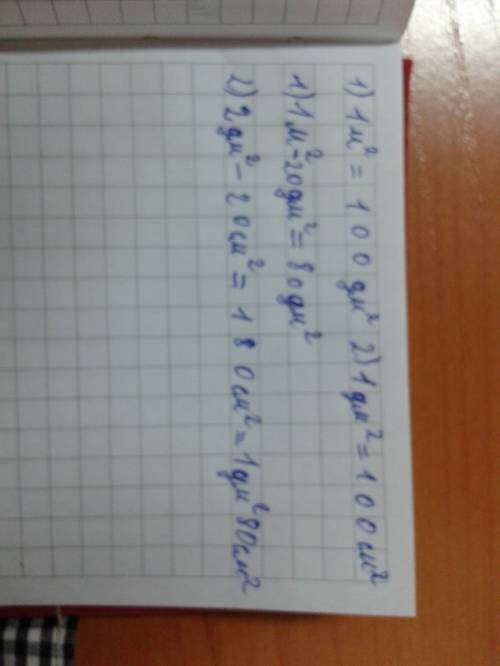 1) 1 м² = 100 дм² 2) 1 дм² = 100 см²
1) 1 м² - 20 дм² = 80 дм²
2) 2 дм² - 20 см² = 180 см² = 1 дм² 80 см²